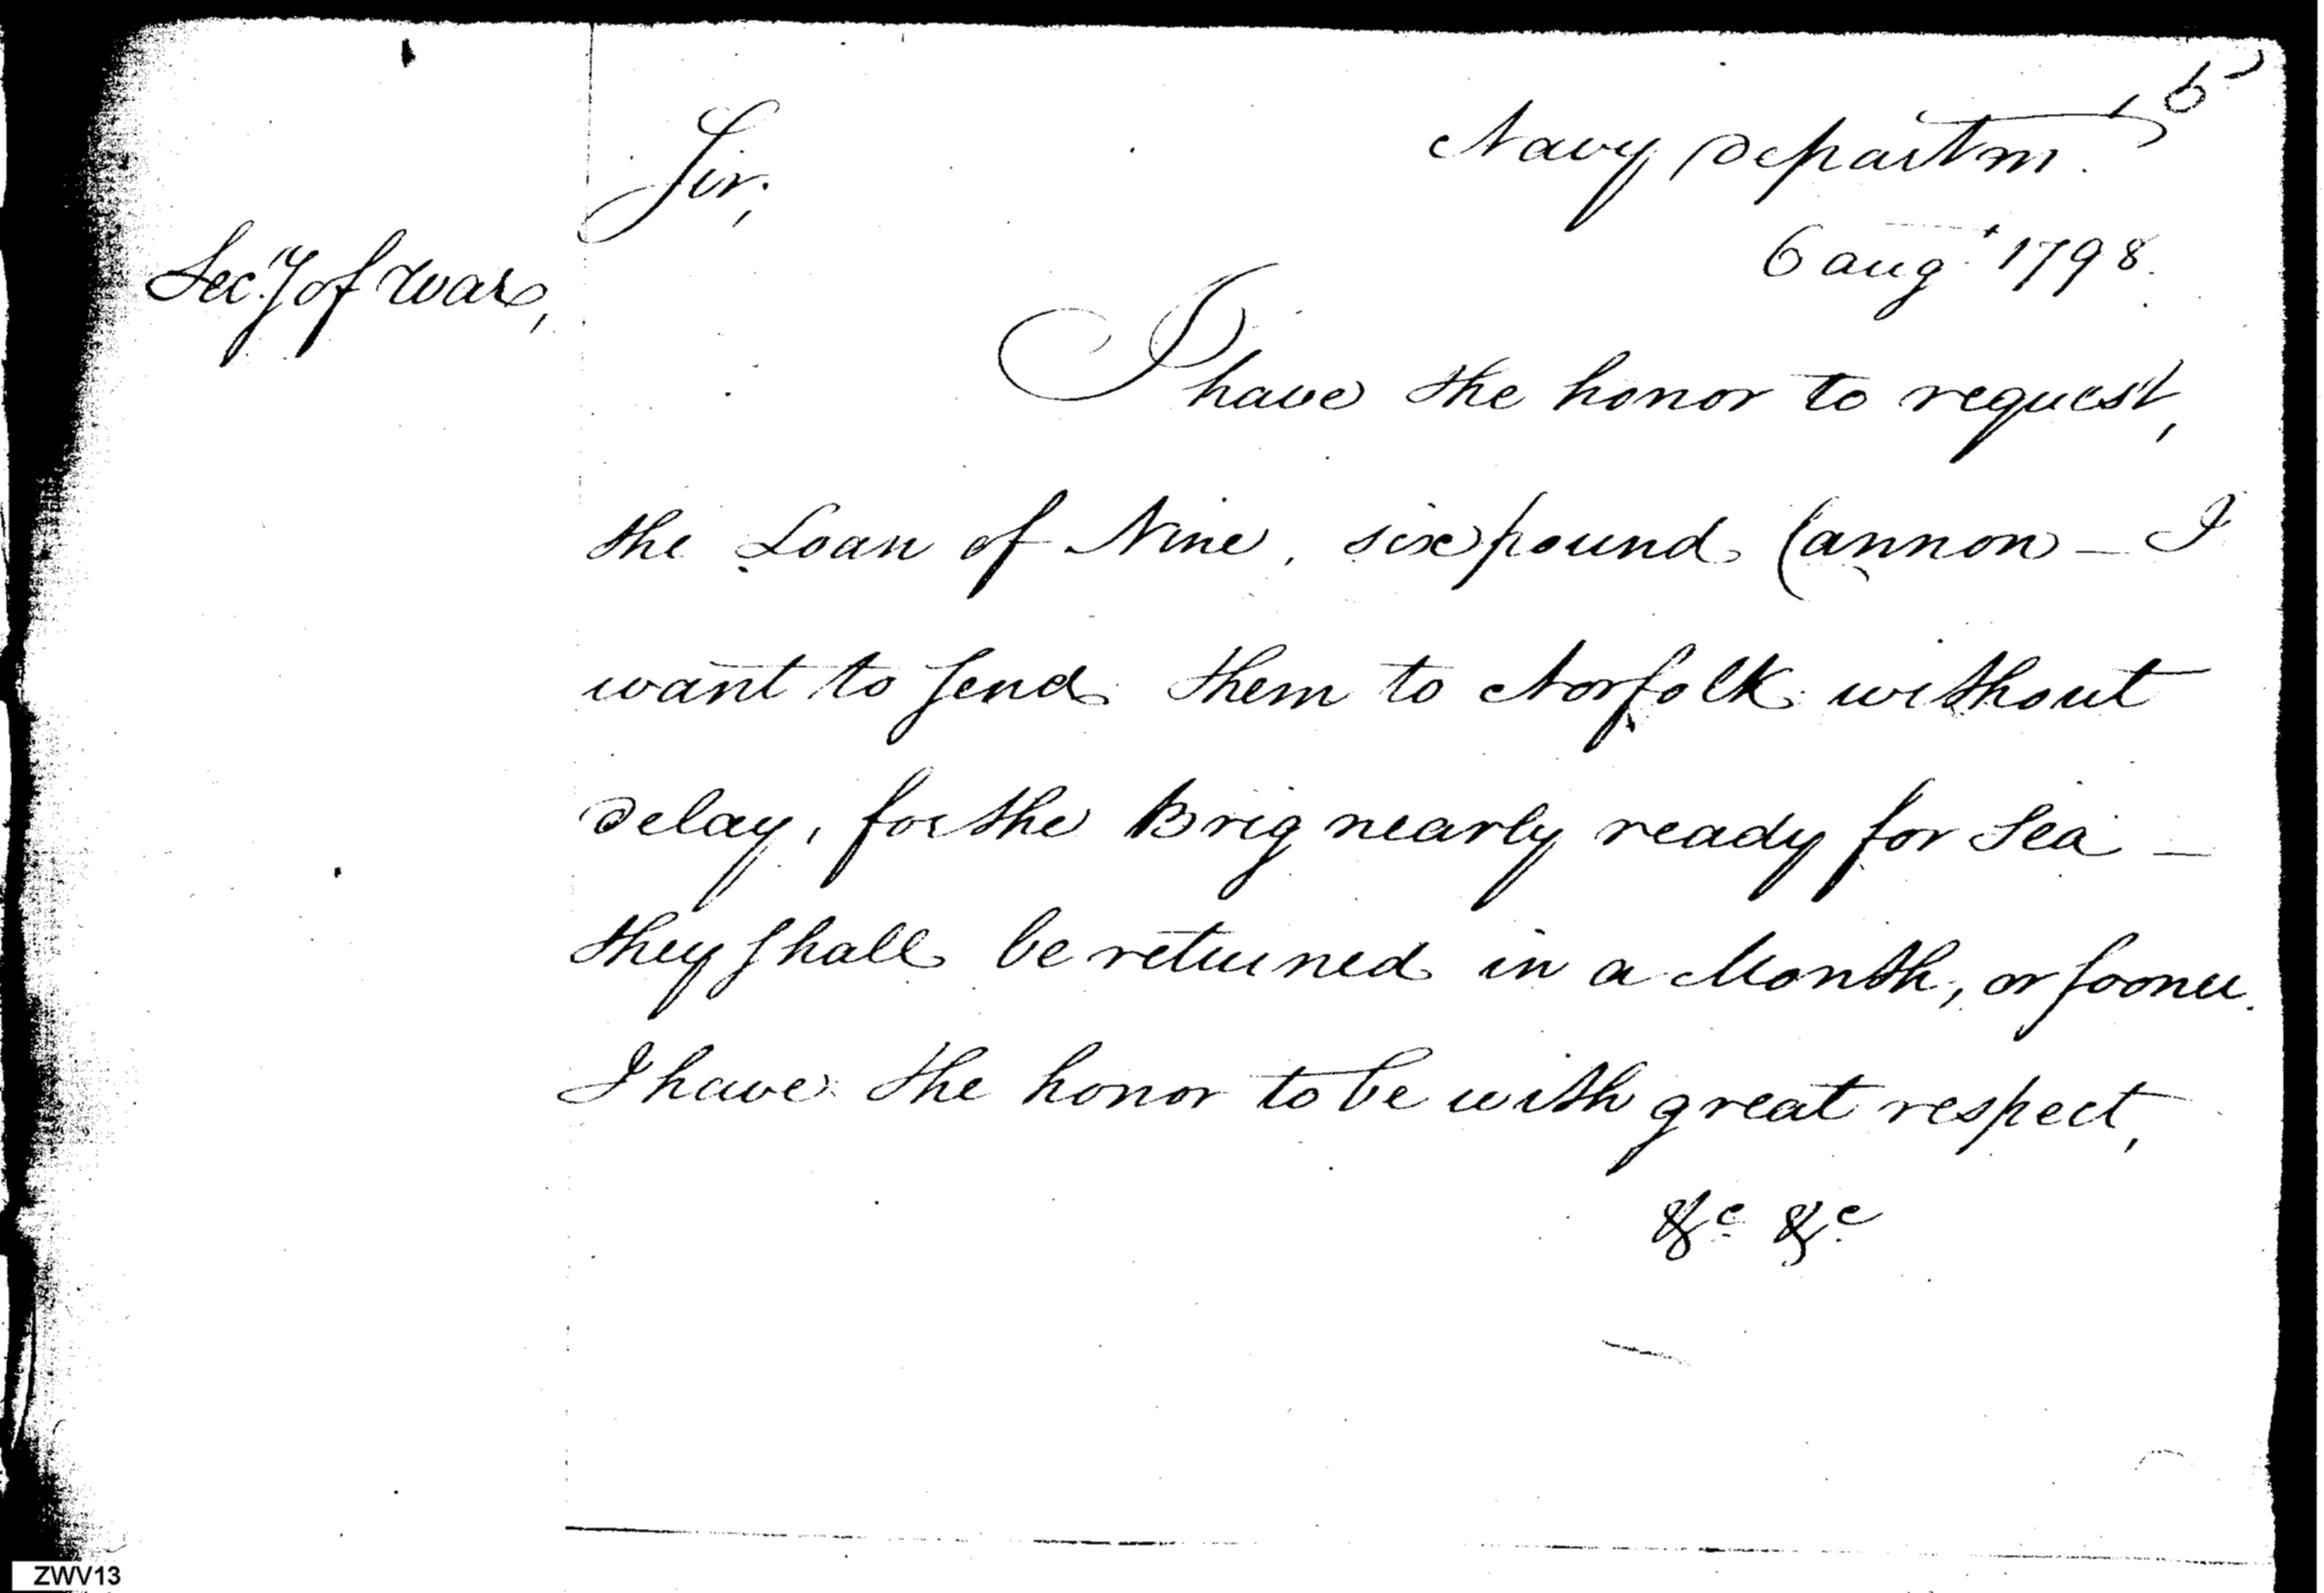 Navy Departm.t
Sir,
6 aug.t 1798.
Sec.y of War,
I have the honor to request,
the Loan of Nine, six pound Cannon — I
want to send them to Norfolk without
delay, for the Brig nearly ready for Sea —
they shall be returned in a Month, or sooner.
I have the honor to be with great respect,
&c &c
ZWV13